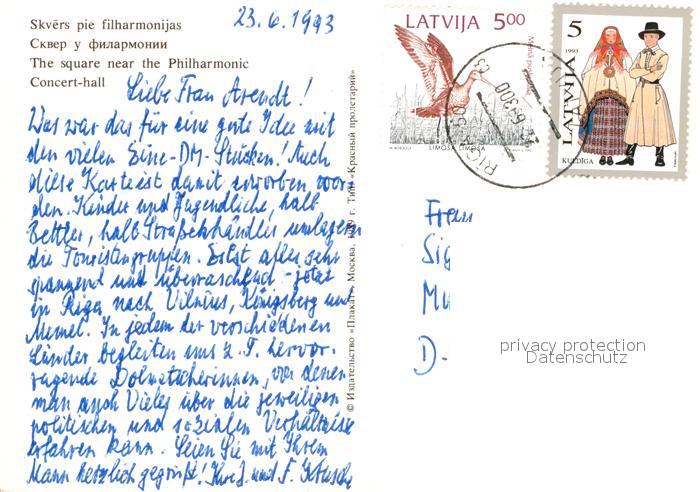 Skvērs pie filharmonijas
Сквер у филармонии
The square near the Philharmonic
Concert-hall
23.6.1993
Liebe Frau Arendt!
Was war das für eine gute Idee mit
den vielen Eine-DM-Stücken! Auch
diese Karte ist damit erworben wor-
den. Kinder und Jugendliche, halb
Bettler, halb Straßenhändler umlagern
die Touristengruppen. Es ist alles sehr
spannend und überraschend - jetzt
in Riga, nach Vilnius, Königsberg und
Memel. In jedem der verschiedenen
Länder begleiten uns z.T. hervor-
ragende Dolmetscherinnen, von denen
man auch Vieles über die jeweiligen
politischen und sozialen Verhältnisse
erfahren kann. Seien Sie mit Ihrem
Mann herzlich gegrüßt! Ihre J. und F.
© Издательство «Плакат» Москва, г. Тип. «Красный пролетарий»
LATVIJA 5.00
LIMOSA LIMOSA
5
1993
LATVIJA
KULDĪGA
RIGA
Frau
Sig
Mu
D-
privacy protection
Datenschutz